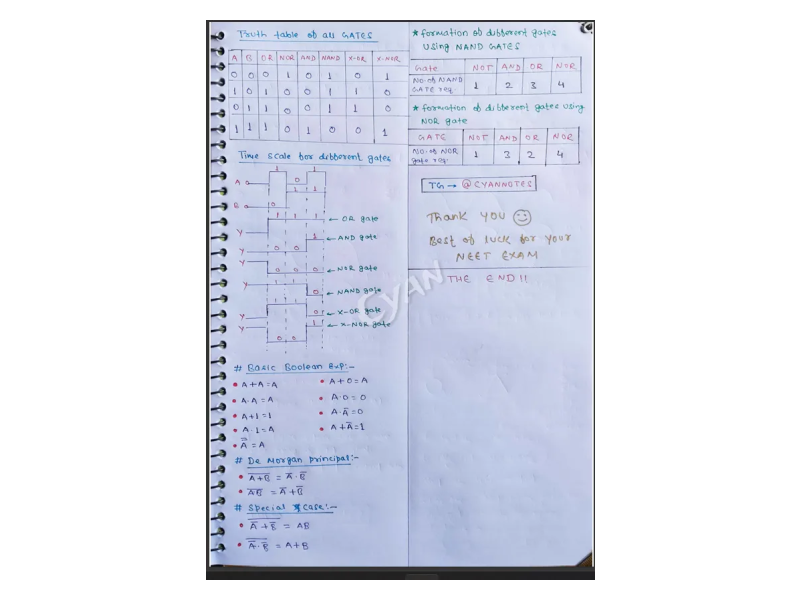 Truth table of all GATES
A B OR NOR AND NAND X-OR X-NOR
0 0 0 1 0 1 0 1
1 0 1 0 0 1 1 0
0 1 1 0 0 1 1 0
1 1 1 0 1 0 0 1
Time scale for different gates
A 0 1 1
B 0
1 1 1
Y ← OR gate
1 ← AND gate
Y 0 0
Y 0 0 0 ← NOR gate
Y 0 ← NAND gate
0 ← X-OR gate
Y 1 ← X-NOR gate
0 0
# Basic Boolean Exp:-
• A+A=A
• A·A=A
• A+1=1
• A·1=A
• A̿=A
• A+0=A
• A·0=0
• A·A̅=0
• A+A̅=1
# De Morgan principal:-
• A̅+̅B̅ = A̅·B̅
• A̅B̅ = A̅+B̅
# Special case:-
• \overline{A̅+B̅} = AB
• \overline{A̅·B̅} = A+B
* formation of different gates
using NAND GATES
Gate NOT AND OR NOR
No. of NAND GATE req. 1 2 3 4
* formation of different gates using
NOR gate
GATE NOT AND OR NOR
No. of NOR gate req. 1 3 2 4
TG → @CYANNOTES
Thank YOU
Best of luck for your
NEET EXAM
THE END!!
Cyan